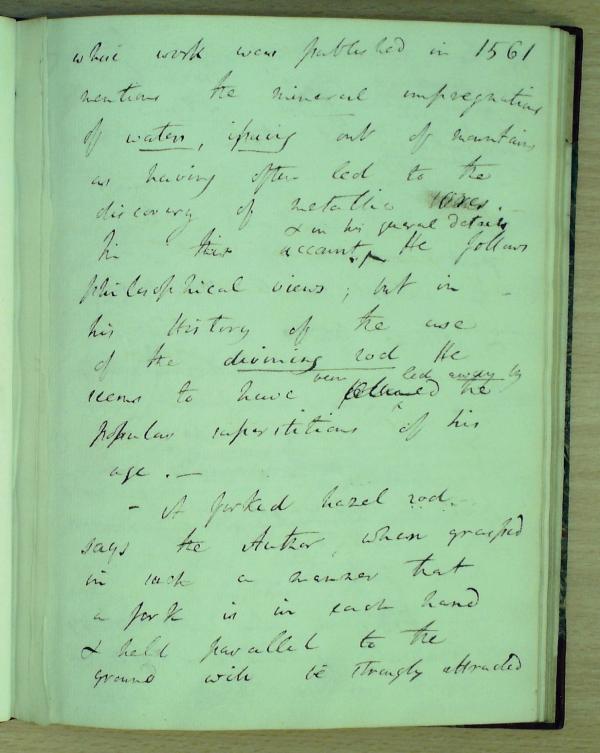 whose work was published in 1561
mentions the mineral impregnation
of waters, issuing out of mountains
as having often led to the
discovery of metallic lodes.
& in his general details
In this account, He follows
philosophical views; but in
his History of the use
of the divining rod He
been led away by
seems to have the
popular superstitions of his
age. —
- A forked hazel rod
says the Author, when grasped
in such a manner that
a fork is in each hand
& held parallel to the
ground will be strongly attracted